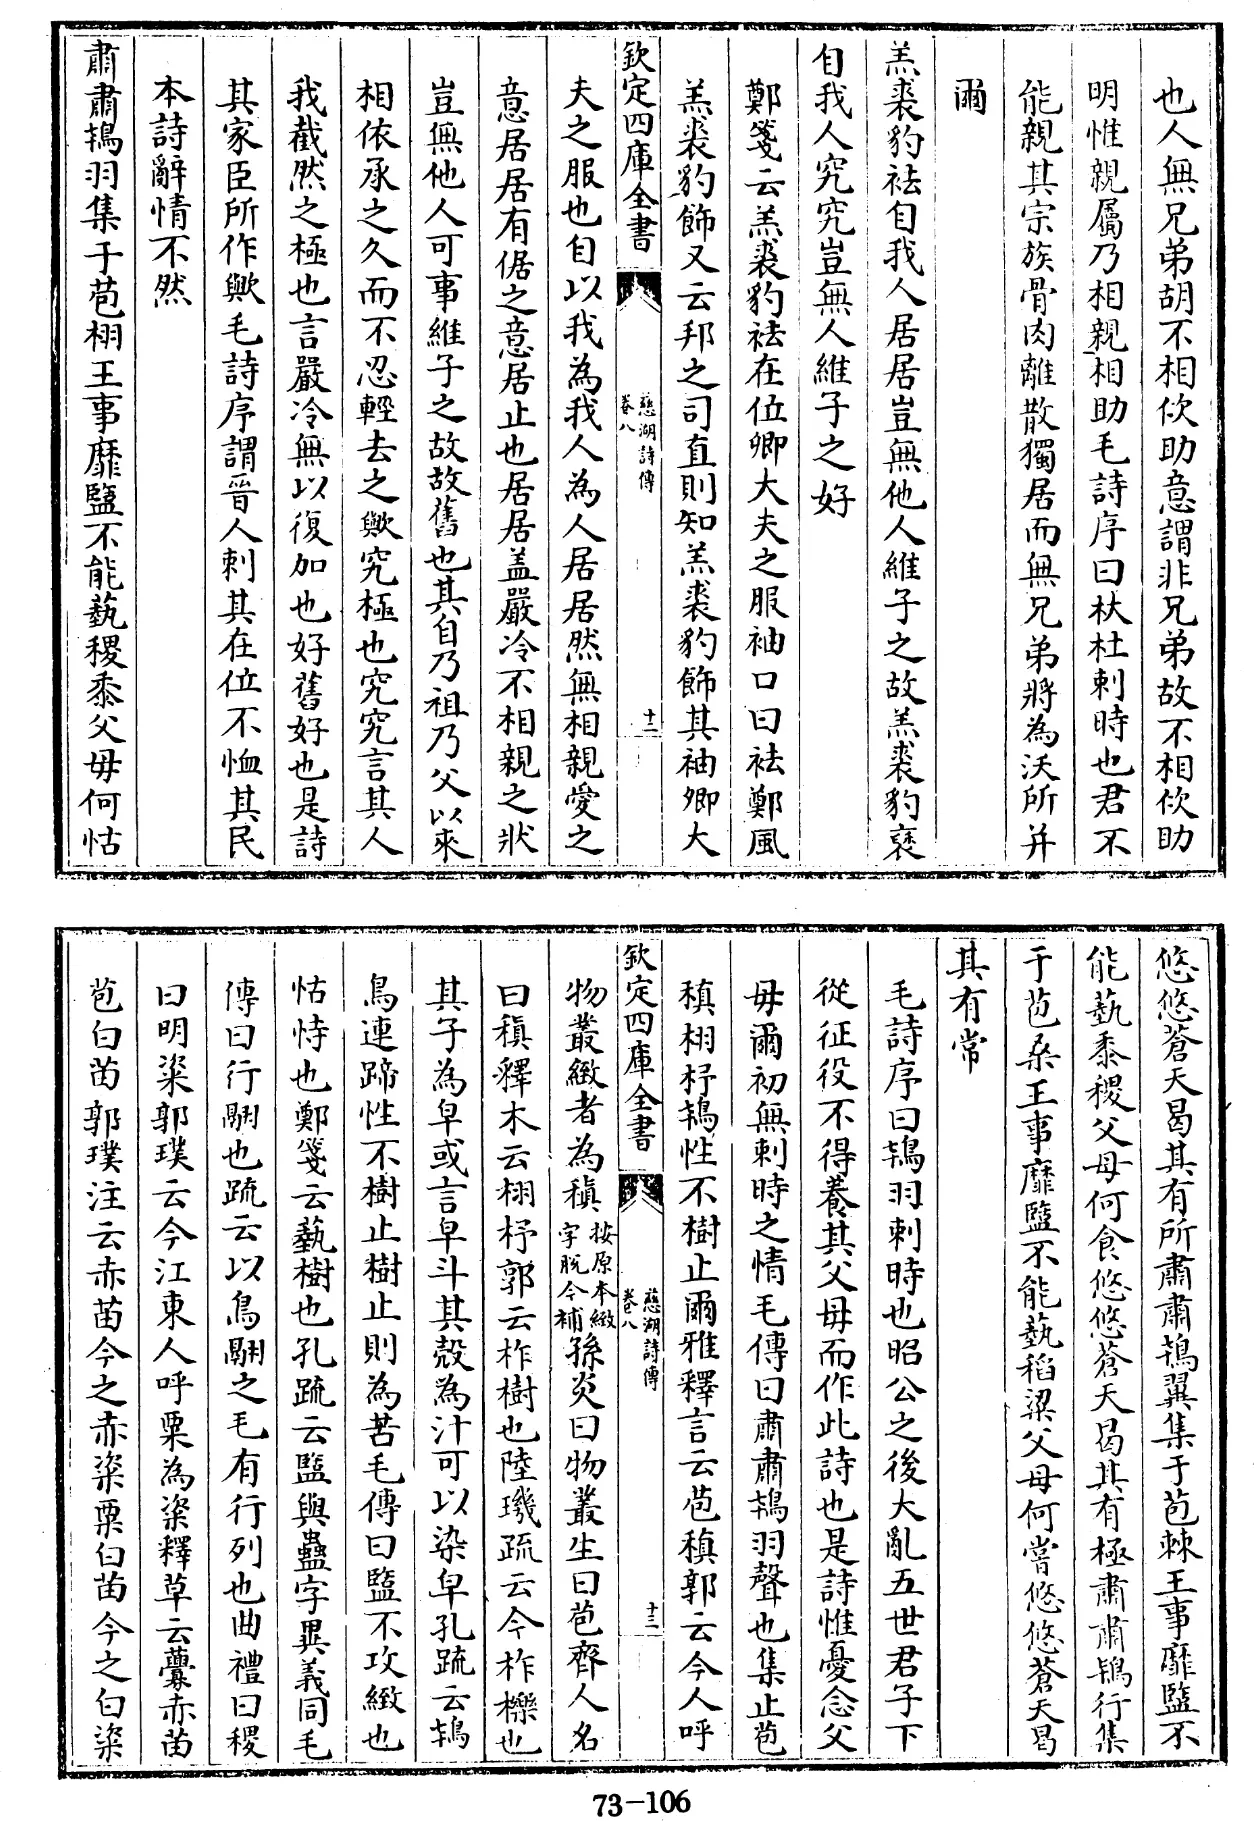 也人無兄弟胡不相佽助意謂非兄弟故不相佽助
明惟親屬乃相親相助毛詩序曰杕杜刺時也君不
能親其宗族骨肉離散獨居而無兄弟將為沃所并
爾
羔裘豹袪自我人居居豈無他人維子之故羔裘豹褎
自我人究究豈無人維子之好
鄭箋云羔裘豹袪在位卿大夫之服袖口曰袪鄭風
羔裘豹飾又云邦之司直則知羔裘豹飾其袖卿大
欽定四庫全書
慈湖詩傳
卷八
十二
夫之服也自以我為我人為人居居然無相親愛之
意居居有倨之意居止也居居盖嚴冷不相親之狀
豈無他人可事維子之故故舊也其自乃祖乃父以來
相依承之久而不忍輕去之歟究極也究究言其人
我截然之極也言嚴冷無以復加也好舊好也是詩
其家臣所作歟毛詩序謂晉人刺其在位不恤其民
本詩辭情不然
肅肅鴇羽集于苞栩王事靡盬不能蓺稷黍父母何怙
悠悠蒼天曷其有所肅肅鴇翼集于苞棘王事靡盬不
能蓺黍稷父母何食悠悠蒼天曷其有極肅肅鴇行集
于苞桑王事靡盬不能蓺稻粱父母何嘗悠悠蒼天曷
其有常
毛詩序曰鴇羽刺時也昭公之後大亂五世君子下
從征役不得養其父母而作此詩也是詩惟憂念父
母爾初無刺時之情毛傳曰肅肅鴇羽聲也集止苞
稹栩杼鴇性不樹止爾雅釋言云苞稹郭云今人呼
欽定四庫全書
慈湖詩傳
卷八
十三
物叢緻者為稹按原本緻字脱今補孫炎曰物叢生曰苞齊人名
曰稹釋木云栩杼郭云柞樹也陸璣疏云今柞櫟也
其子為皁或言皁斗其殻為汁可以染皁孔疏云鴇
鳥連蹄性不樹止樹止則為苦毛傳曰盬不攻緻也
怙恃也鄭箋云蓺樹也孔疏云盬與蠱字異義同毛
傳曰行翮也疏云以鳥翮之毛有行列也曲禮曰稷
曰明粢郭璞云今江東人呼粟為粢釋草云虋赤苗
芑白苗郭璞注云赤苗今之赤粢粟白苗今之白粢
73-106